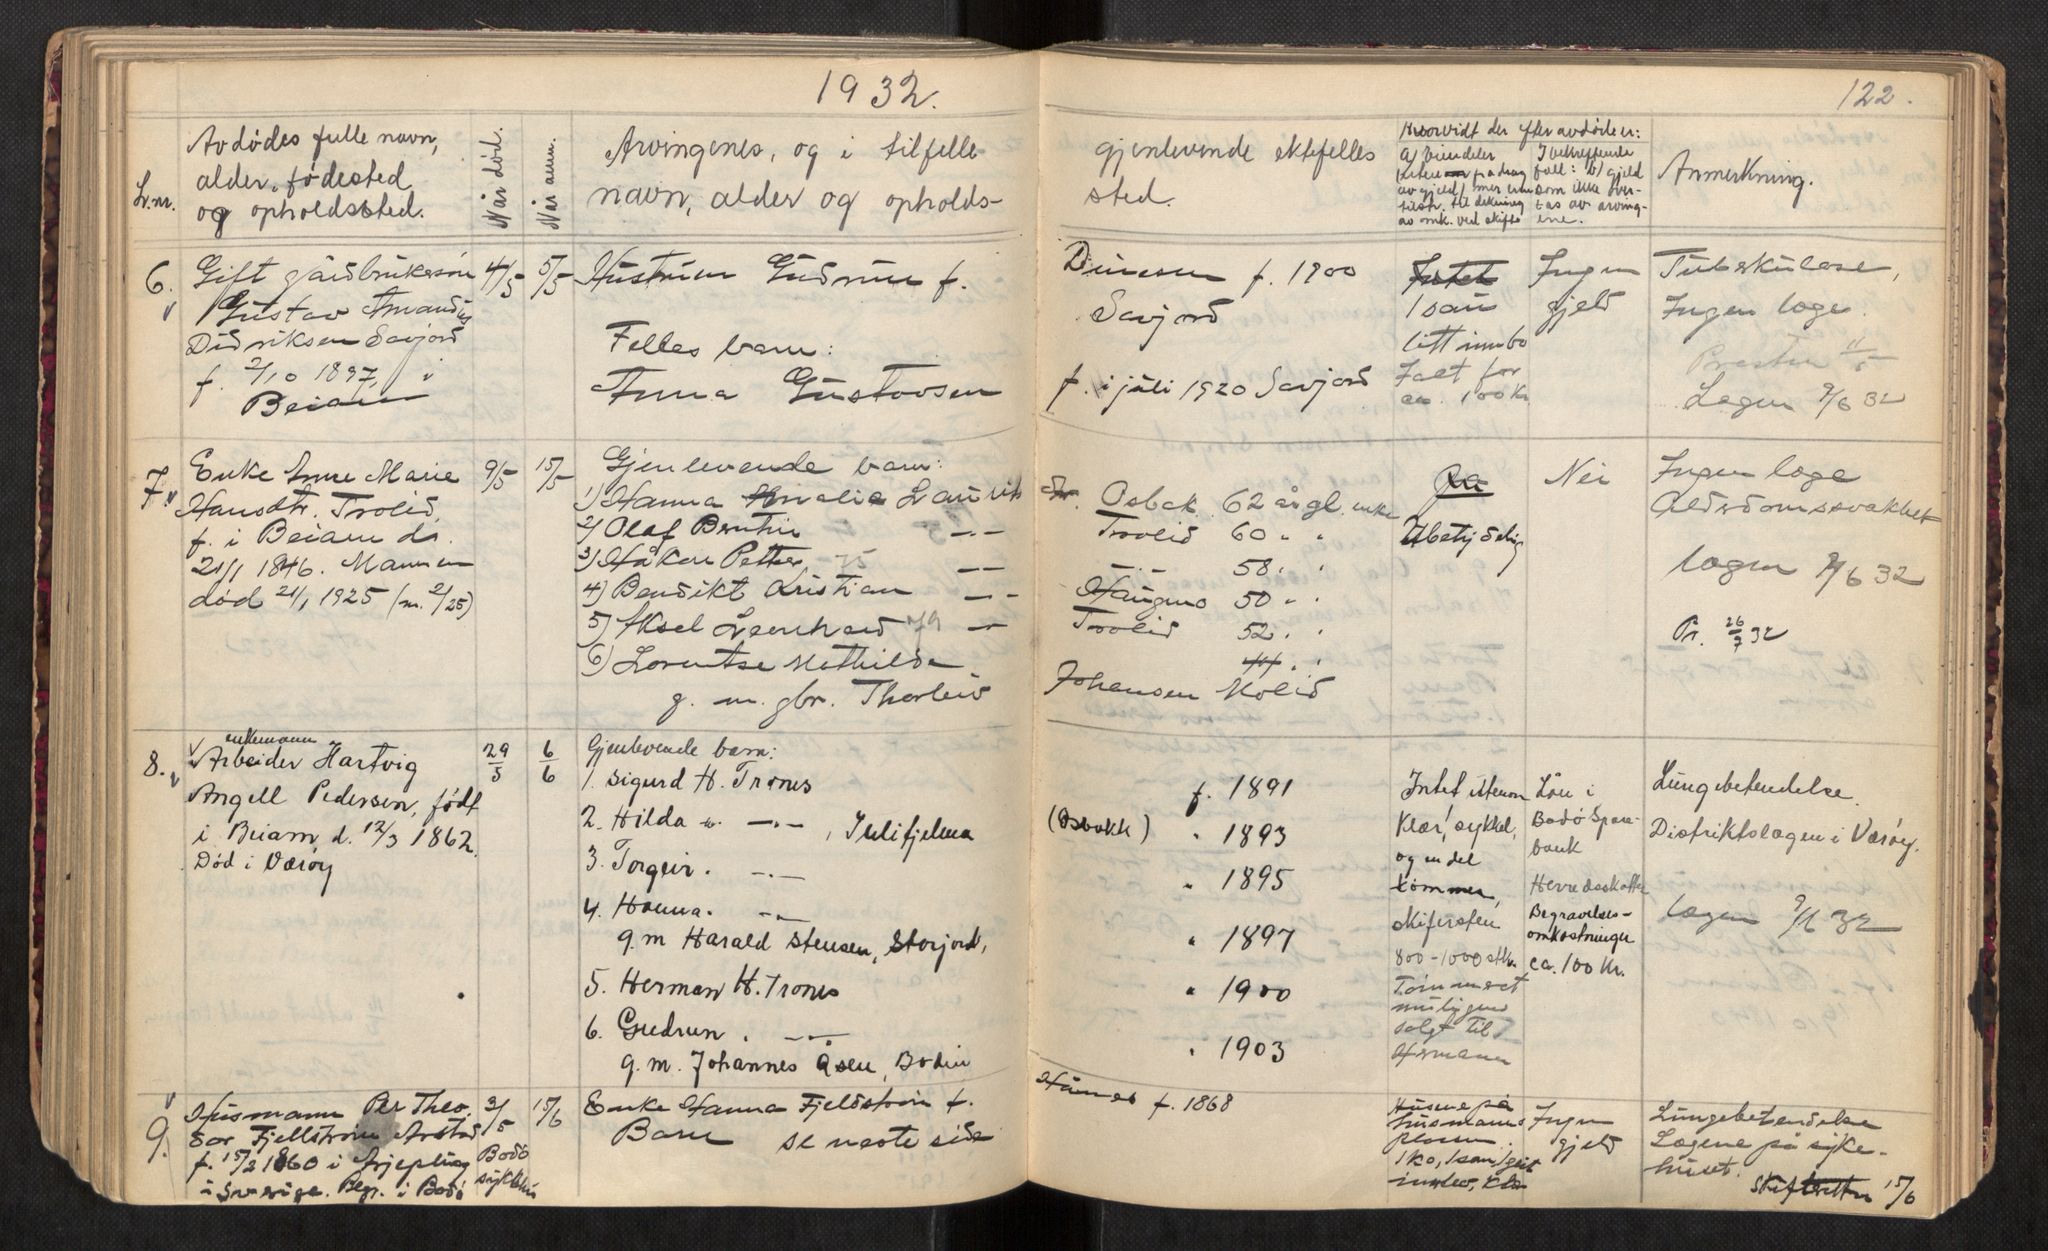 1932.
122.
L.nr.
Avdødes fulle navn,
alder, fødested
og opholdssted.
Når død.
Når anm.
Arvingenes, og i tilfelle
navn, alder og opholds-
gjenlevende ektefelles
sted.
Hvorvidt der efter avdøde er:
a) Eiendeler
av gjeld) mer enn
tilstr. til dekning
av omk. ved skifte
I bekreftende
fall: b) gjeld
som ikke over-
tas av arving-
ene.
Anmerkning.
6.
Gift gårdbrukersøn
Gustav Amandus
Didriksen Savjord
f. 2/10 1897, i
Beiarn
4/5
5/5
Hustruen Gudrun f.
Felles barn:
Anna Gustavsen
f. 1900
Savjord
f. i juli 1920 Savjord
Intet
1 sau
litt innbo
I alt for
ca. 100 kr
Ingen
gjeld
Tuberkulose,
Ingen læge.
Presten 11/5
Lægen 9/6 32
7.
Enke Anne Marie
Hansdtr. Trolid,
f. i Beiarn d.
21/1 1846. Mannen
død 21/1 1925 (m. 2/25)
9/5
15/5
Gjenlevende barn:
1) Hanna Amalie Laurits
2) Olaf Bentin —"—
3) Håkon Petter 75 —"—
4) Benedikt Kristian —"—
5) Aksel Leonhard 79 —"—
6) Lorentse Mathilde
g. m. gbr. Thorleiv
dr. Osbak 62 år gl. enke
Trolid 60 " "
—"— 58 " "
Haugmo 50 " "
Trolid 52 " "
44 " "
Johansen Molid
Ja
Ubetydelig
Nei
Ingen læge
Alderdomssvakhet
lægen 9/6 32
Pr. 26/7 32
8.
enkemann
Arbeider Hartvig
Angell Pedersen, født
i Beiarn, d. 12/3 1862.
Død i Værøy
29/5
6/6
Gjenlevende barn:
1. Sigurd H. Trones
2. Hilda —"—, Julifjelma
3. Torgeir. —"—
4. Hanna. —"—
g.m Harald Stensen, Storjord,
5. Herman H. Trones
6. Gudrun. —"—
g. m. Johannes Åsen, Bodin
f. 1891
(Osbakk) " 1893
" 1895
" 1897
" 1900
" 1903
Intet utenom
Klær, sykkel,
og en del
tømmer,
skiferstein
800-1000 stk.
Tømmeret
muligens
solgt til
Hermann
Lån i
Bodø Spare-
bank
Herredsskatter
Begravelses-
omkostninger
ca. 100 kr.
Lungebetendelse.
Distriktslægen i Værøy.
lægen 9/6 32
9.
Husmann Per Theo-
dor Fjellstrøm Arstad
f. 15/2 1860 i Arjeplog
i Sverige. Begr. i Bodø
3/5
Bodø
sykehus
15/6
Enke Hanna Fjeldstrøm f.
Barn se neste side
f. 1868
Husene på
husmanns
plassen.
1 ko, 1 sau, 1 geit
innbo, klær
Ingen
gjeld
Lungebetendelse
Lægene på syke-
huset.
Skifteretten 15/6